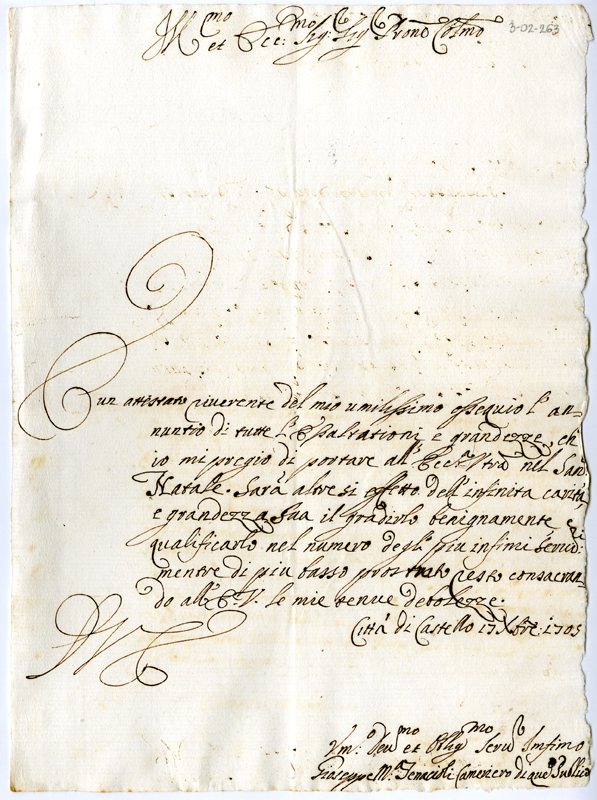 Ill.mo et Ecc.mo Sig.r Sig.r Prone Colmo
3-02-263
È un attestato riverente del mio umilissimo ossequio l'an-
nuntio di tutte l'Esaltationi, e grandezze, ch'
io mi pregio di portare all'Ecc.a Vtra nel San.
Natale. Sarà altresi effetto dell'infinita carità,
e grandezza Sua il gradirlo benignamente e
qualificarlo nel numero degl'più infimi Servid.
mentre di più basso prostrato resto consacran-
do all'E.V. le mie tenue debolezze.
Città di Castello 17 Xbre: 1705
Um.o Deu.mo et Oblig.mo Seru. Infimo
Giuseppe M. Cameriero di que Publico